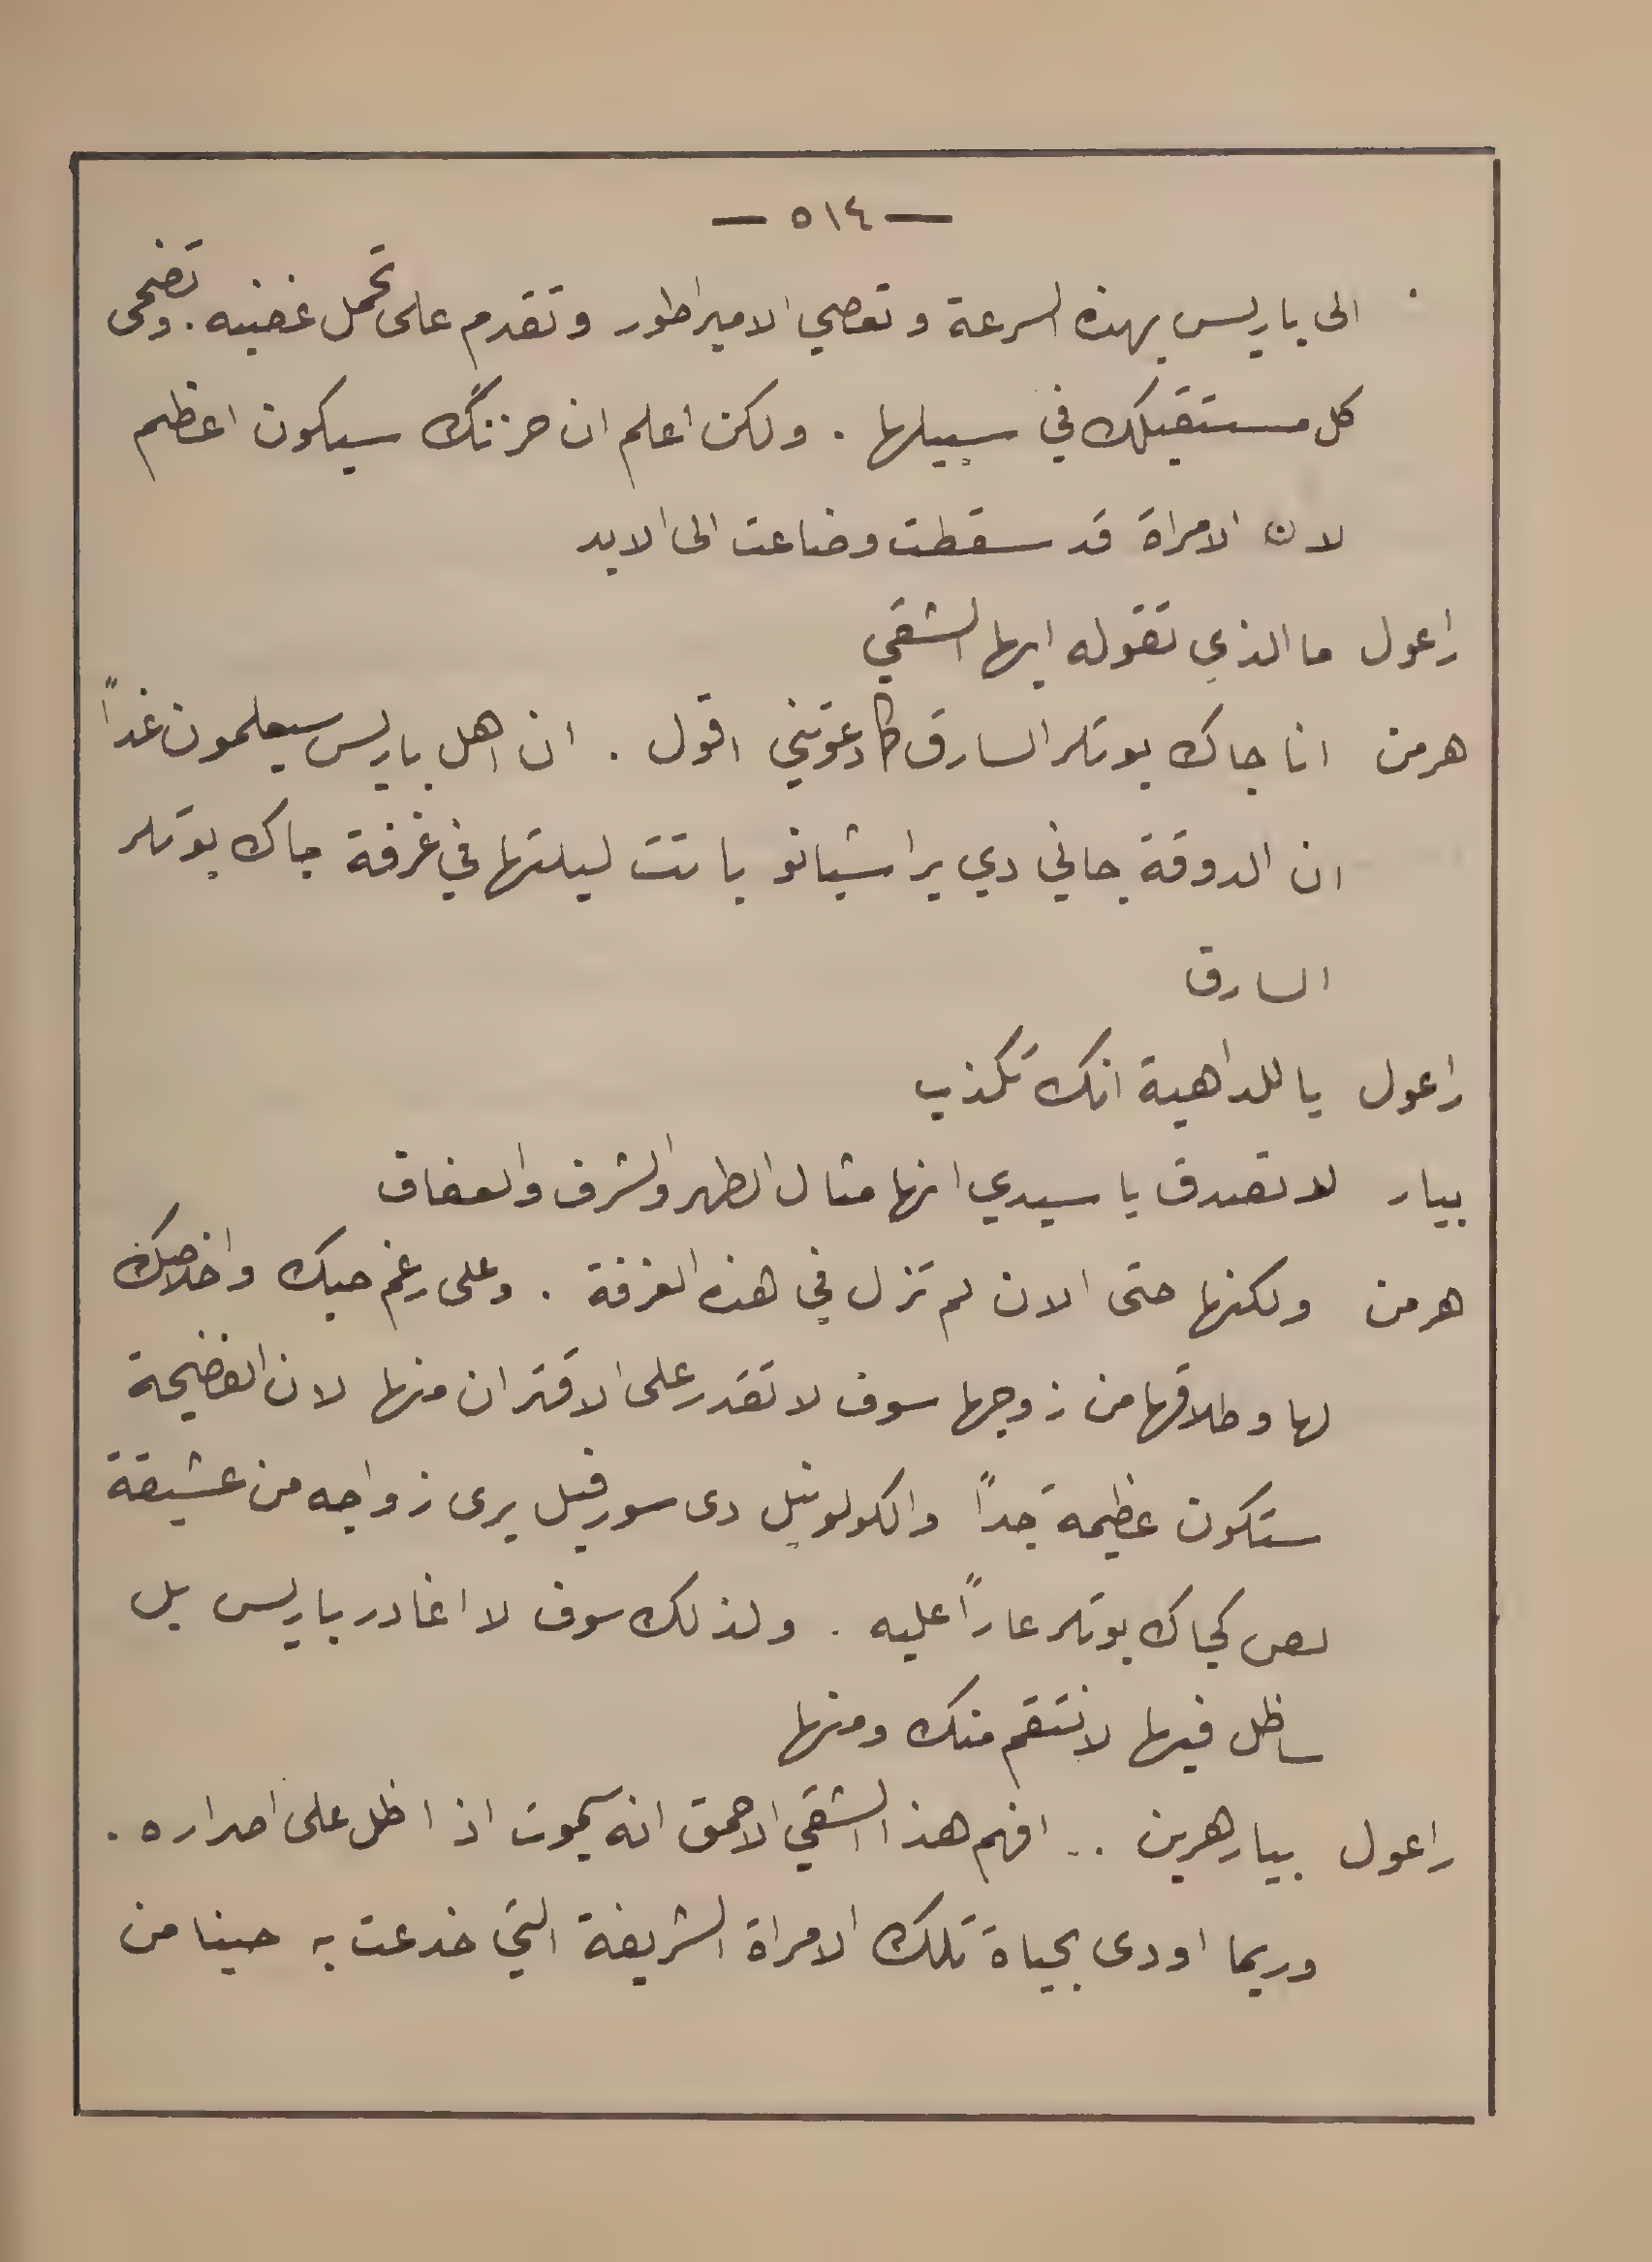 — ٥١٤ —
الى باريس بهذه السرعة وتعصي الامبراطور وتقدم على تحمل غضبه . وتضحى
كل مستقبلك في سبيلها . ولكن اعلم ان حزنك سيكون اعظم
لان الامراة قد سقطت وضاعت الى الابد
راعول ما الذي تقوله ايها الشقي
هرمن انا جاك بوتلر السارق كما دعوتني اقول . ان اهل باريس سيعلمون غداً
ان الدوقة جاني دي براشيانو باتت ليلتها في غرفة جاك بوتلر
السارق
راعول يا للداهية انك تكذب
بيار لا تصدق يا سيدي انها مثال الطهر والشرف والعفاف
هرمن ولكنها حتى الان لم تزل في هذه الغرفة . وعلى رغم حبك واخلاصك
لها وطلاقها من زوجها سوف لا تقدر على الاقتران منها لان الفضيحة
ستكون عظيمة جداً والكولونيل دى سورفيل يرى زواجه من عشيقة
لص كجاك بوتلر عاراً عليه . ولذلك سوف لا اغادر باريس بل
ساظل فيها لانتقم منك ومنها
راعول بيار هرين .. افهم هذا الشقي الاحمق انه سيموت اذا ظل على اصراره .
وربما اودى بحياة تلك الامراة الشريفة التي خدعت به حينا من